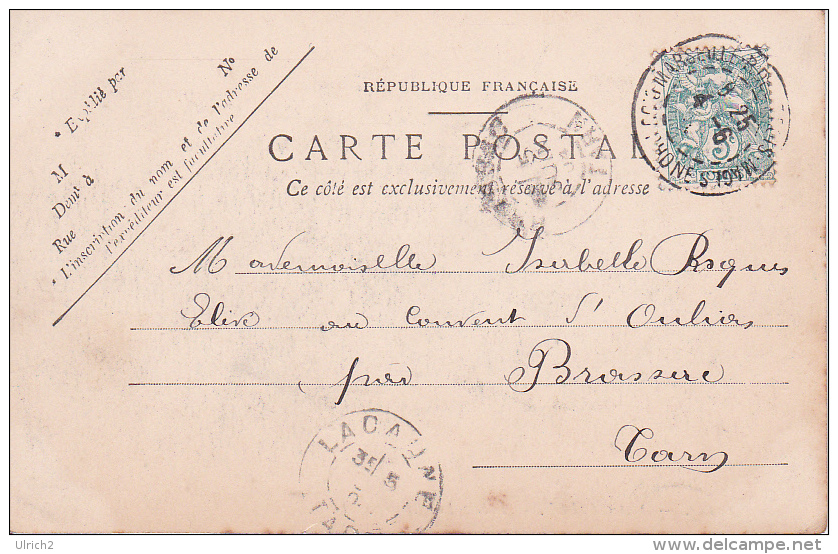 RÉPUBLIQUE FRANÇAISE
CARTE POSTAL
Ce côté est exclusivement réservé à l'adresse
* Expédié par
M N°
Demt à
Rue
* L'inscription du nom et de l'adresse de
l'expéditeur est facultative
Mademoiselle Isabelle Roques
Elève au Convent d'Oulias
par Brassac
Tarn
LACAUNE
Ulrich2
delcampe.net